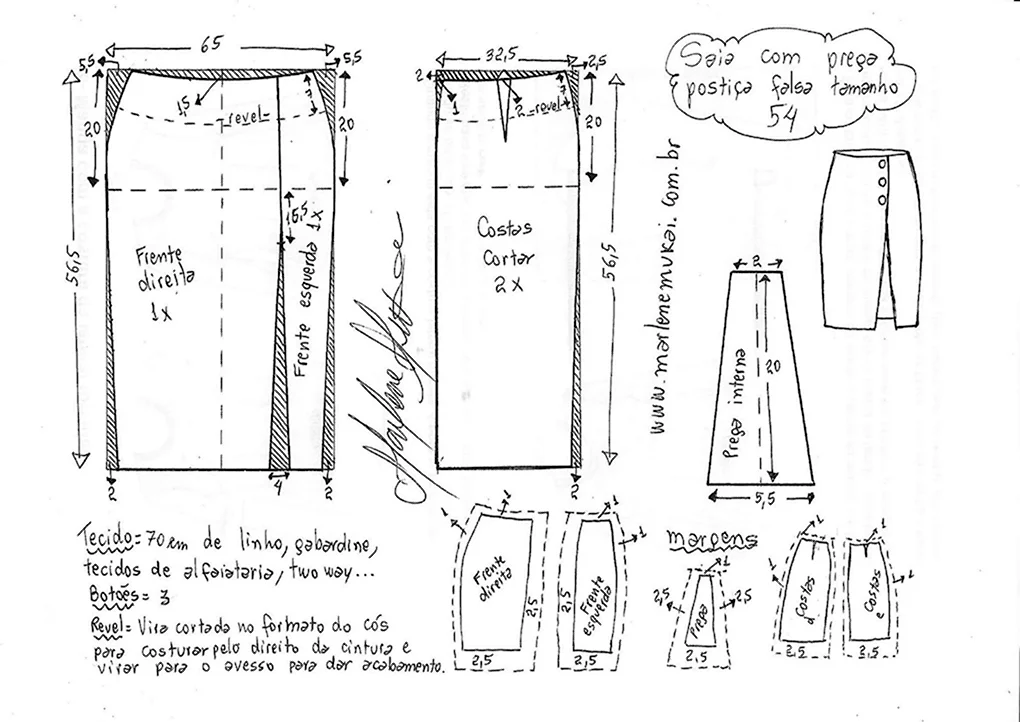 Saia com prega
postiça falsa tamanho
54
65
5,5
5,5
56,5
20
1,5
revel
7
20
15,5
Frente
direita
1x
Frente esquerda 1x
2
4
2
32,5
2,5
2
1
2
revel
7
20
56,5
Costas
Cortar
2x
2
www.marlenemukai.com.br
2
20
Prega interna
5,5
Tecido = 70cm de linho, gabardine,
tecidos de alfaiataria, two way...
Botões = 3
Revel = Vira cortada no formato do cós
para costurar pelo direito da cintura e
virar para o avesso para dar acabamento.
1
1
Frente
direita
2,5
2,5
1
1
2,5
Frente
esquerda
2,5
margens
1
2,5
2,5
Prega
2,5
1
1
Costas
d
2,5
1
1
Costas
e
2,5